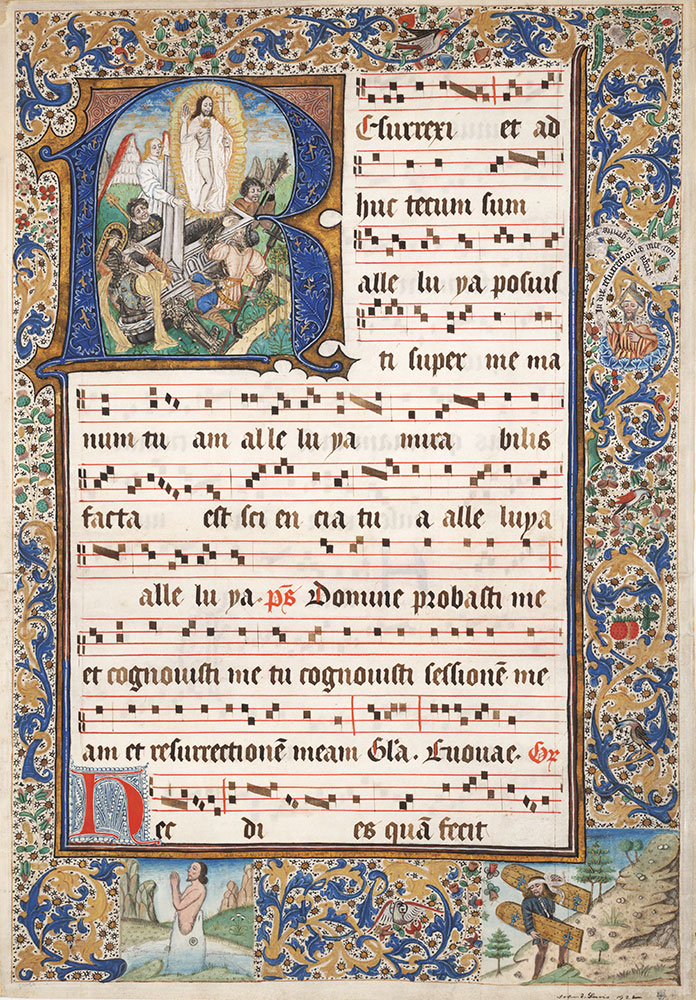 Resurrexi et ad
huc tecum sum
alle lu ya posuis
ti super me ma
num tu am alle lu ya mira bilis
facta est sci en cia tu a alle luya
alle lu ya. ps̃ Domine probasti me
et cognouisti me tu cognouisti sessionē me
am et resurrectionē meam Gl̃a. Euouae. Gr̃
Hec di es quā fecit
In die resurrectionis mee con